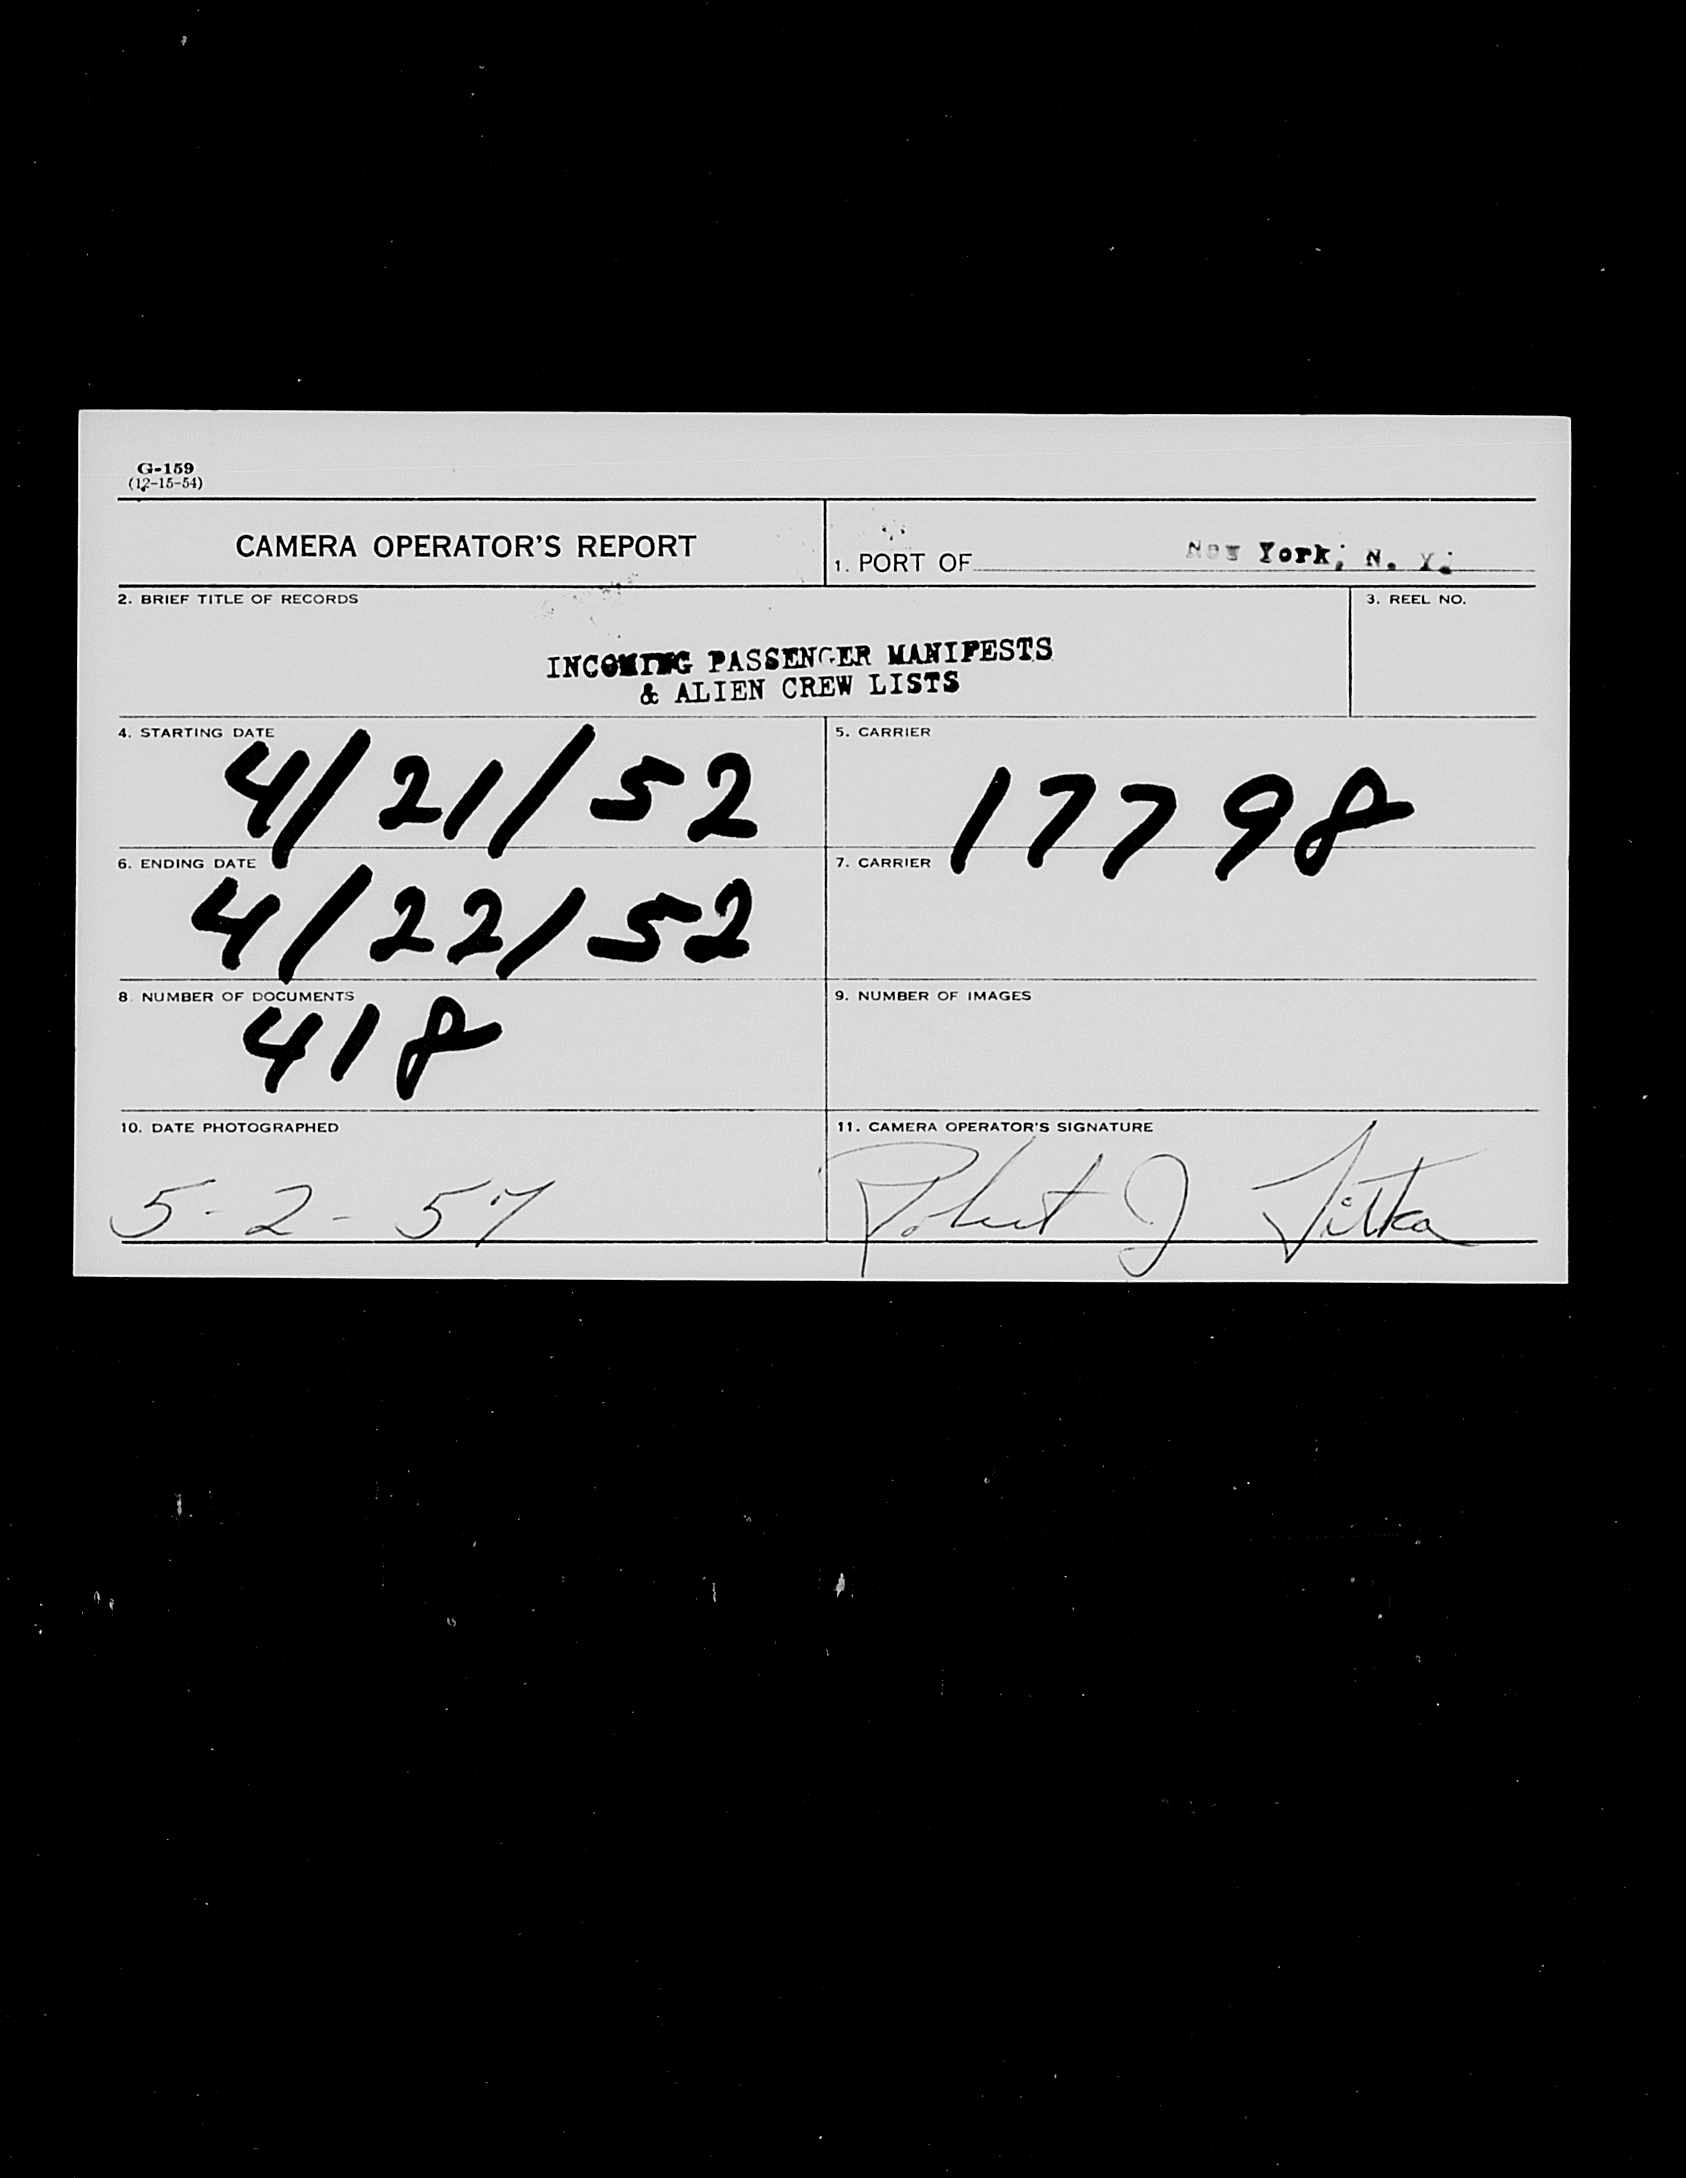 G-159
(12-15-54)
CAMERA OPERATOR'S REPORT
1. PORT OF New York, N. Y.
2. BRIEF TITLE OF RECORDS
3. REEL NO.
INCOMING PASSENGER MANIFESTS
& ALIEN CREW LISTS
4. STARTING DATE
4/21/52
5. CARRIER
17798
6. ENDING DATE
4/22/52
7. CARRIER
8. NUMBER OF DOCUMENTS
418
9. NUMBER OF IMAGES
10. DATE PHOTOGRAPHED
5-2-57
11. CAMERA OPERATOR'S SIGNATURE
Robert J